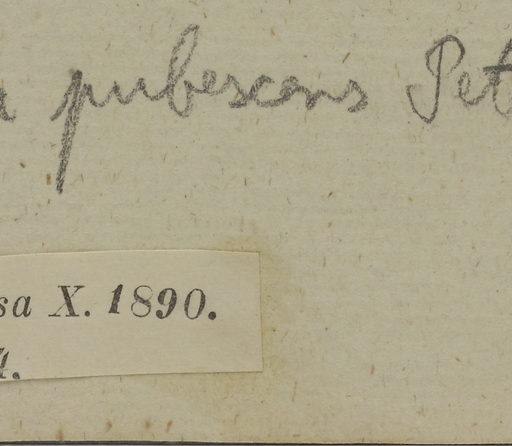 a pubescens Pet
sa X. 1890.
4.